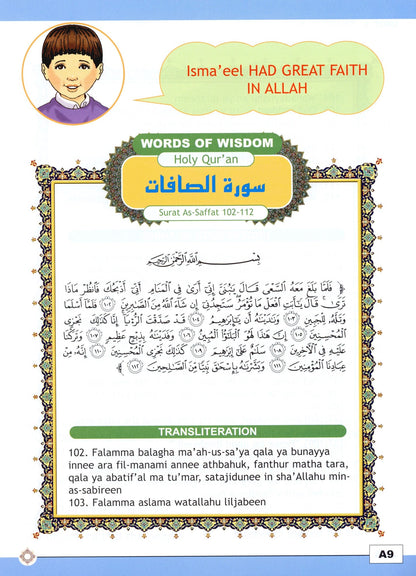 Isma'eel HAD GREAT FAITH
IN ALLAH
WORDS OF WISDOM
Holy Qur'an
سورة الصافات
Surat As-Saffat 102-112
بِسْمِ اللَّهِ الرَّحْمَٰنِ الرَّحِيمِ
﴿ فَلَمَّا بَلَغَ مَعَهُ السَّعْيَ قَالَ يَٰبُنَيَّ إِنِّي أَرَىٰ فِي الْمَنَامِ أَنِّي أَذْبَحُكَ فَانظُرْ مَاذَا
تَرَىٰ ۚ قَالَ يَٰأَبَتِ افْعَلْ مَا تُؤْمَرُ ۖ سَتَجِدُنِي إِن شَاءَ اللَّهُ مِنَ الصَّٰبِرِينَ ١٠٢ فَلَمَّا أَسْلَمَا
وَتَلَّهُ لِلْجَبِينِ ١٠٣ وَنَٰدَيْنَٰهُ أَن يَٰإِبْرَٰهِيمُ ١٠٤ قَدْ صَدَّقْتَ الرُّءْيَا ۚ إِنَّا كَذَٰلِكَ نَجْزِي
الْمُحْسِنِينَ ١٠٥ إِنَّ هَٰذَا لَهُوَ الْبَلَٰٓؤُا الْمُبِينُ ١٠٦ وَفَدَيْنَٰهُ بِذِبْحٍ عَظِيمٍ ١٠٧ وَتَرَكْنَا
عَلَيْهِ فِي الْآخِرِينَ ١٠٨ سَلَٰمٌ عَلَىٰ إِبْرَٰهِيمَ ١٠٩ كَذَٰلِكَ نَجْزِي الْمُحْسِنِينَ ١١٠ إِنَّهُ مِنْ
عِبَادِنَا الْمُؤْمِنِينَ ١١١ وَبَشَّرْنَٰهُ بِإِسْحَٰقَ نَبِيًّا مِّنَ الصَّٰلِحِينَ ١١٢ ﴾
TRANSLITERATION
102. Falamma balagha ma'ah-us-sa'ya qala ya bunayya
innee ara fil-manami annee athbahuk, fanthur matha tara,
qala ya abatif'al ma tu'mar, satajidunee in sha'Allahu min-
as-sabireen
103. Falamma aslama watallahu liljabeen
A9